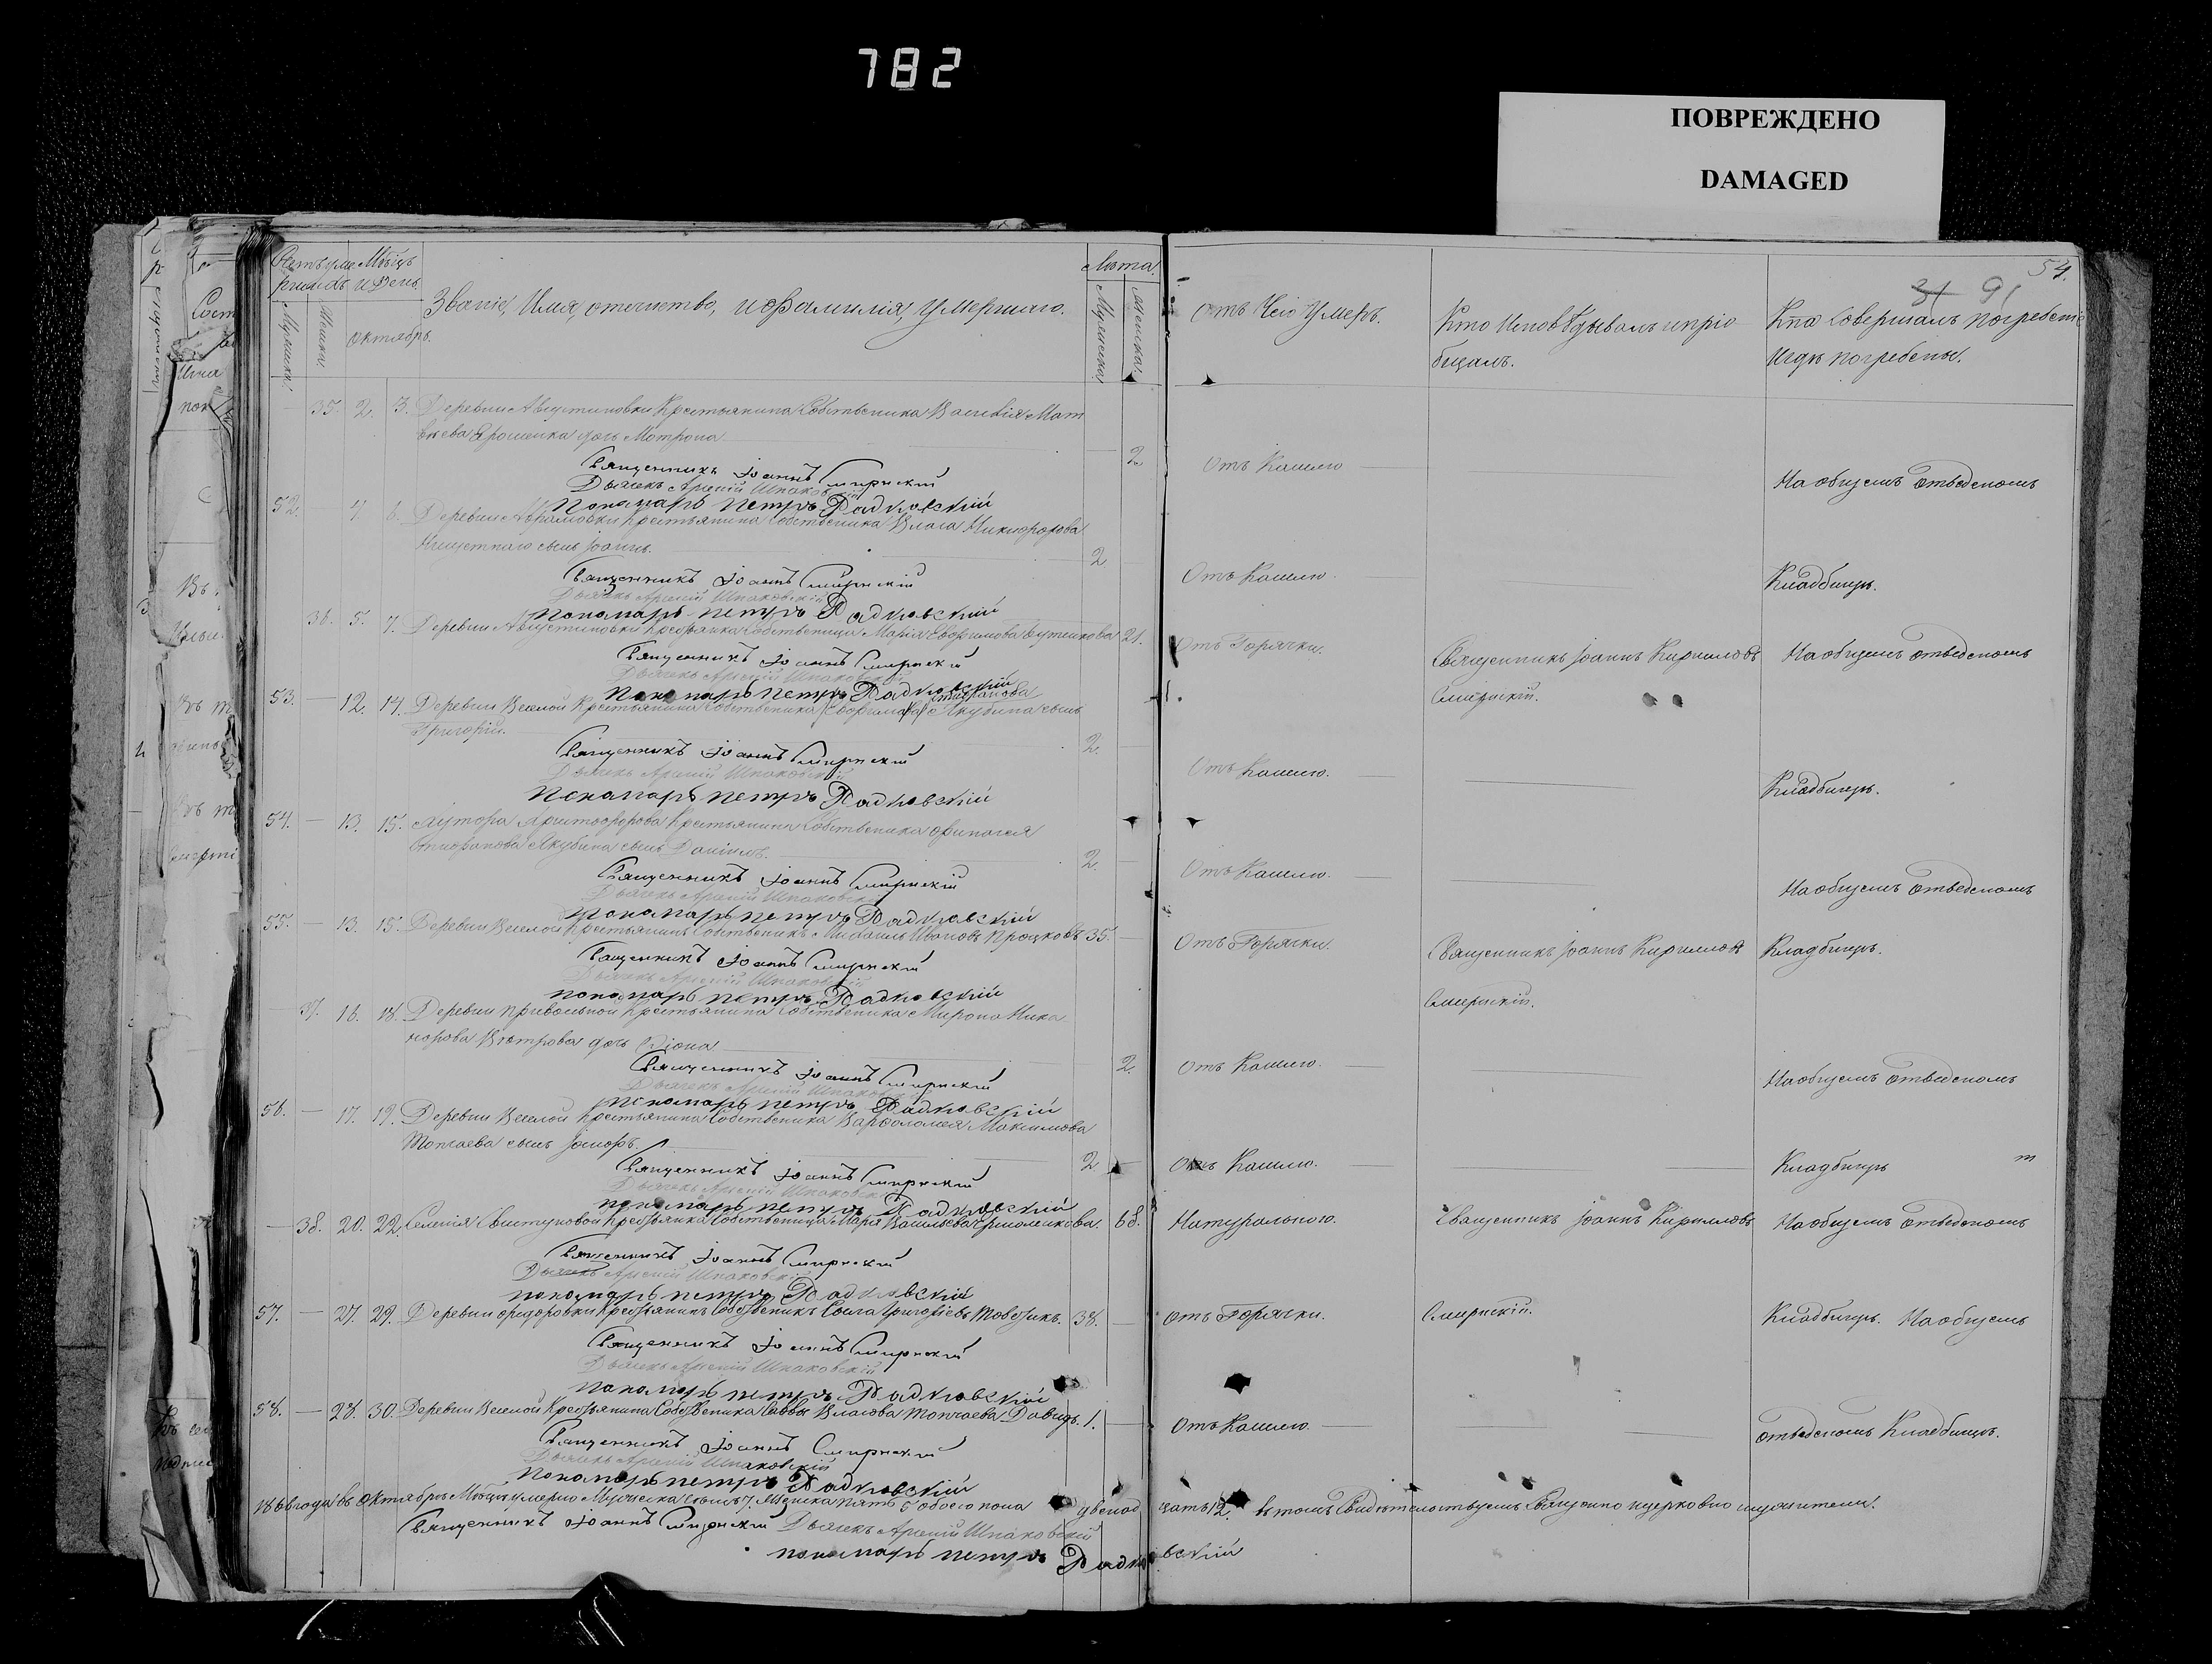 782
ПОВРЕЖДЕНО
DAMAGED
54.
31 91
Мѣсяцъ и День
Октябрь
Званіе, Имя, отечество, и фамилія, Умершаго.
Лѣта
Мужеска
Женска
Отъ Чего Умеръ.
Кто Исповѣдывалъ и пріо
бщалъ.
Кто Совершалъ Погребеніе
и гдѣ погребены.
35. 2. 3. Деревни Августиновки Крестьянина Собственника Василія Мат
вѣева Ярошенка дочь Мотрона 2. Отъ Кашлю На общемъ отведеномъ
Священникъ Іоаннъ Смирнскій
Дьячекъ Арсеній Шпаковскій
Пономарь Петръ Радковскій
52. 4 6. Деревни Крестьянина Собственника Власа Никифорова
сынъ Іоаннъ. 2 Отъ Кашлю. Кладбищѣ.
Священникъ Іоаннъ Смирнскій
Дьячекъ Арсеній Шпаковскій
Пономарь Петръ Радковскій
36. 5. 7. Деревни Августиновки Крестьянка Собственница Марія Евфимова 21. Отъ Горячки. Священникъ Іоаннъ Кирилловъ На общемъ отведеномъ
Смирнскій.
Священникъ Іоаннъ Смирнскій
Дьячекъ Арсеній Шпаковскій
Пономарь Петръ Радковскій
53. — 12. 14. Деревни Веселой Крестьянина Собственника Якубина сынъ
Григорій. 2. Отъ Кашлю. Кладбищѣ.
Священникъ Іоаннъ Смирнскій
Дьячекъ Арсеній Шпаковскій
Пономарь Петръ Радковскій
54. — 13. 15. Хутора Христофорова Крестьянина Собственника
Якубина сынъ Даніилъ. 2. Отъ Кашлю. На общемъ отведеномъ
Священникъ Іоаннъ Смирнскій
Дьячекъ Арсеній Шпаковскій
Пономарь Петръ Радковскій
55. — 13. 15. Деревни Веселой Крестьянинъ Собственникъ Михаилъ Ивановъ Процковъ 35. Отъ Горячки. Священникъ Іоаннъ Кирилловъ Кладбищѣ.
Смирнскій.
Священникъ Іоаннъ Смирнскій
Дьячекъ Арсеній Шпаковскій
Пономарь Петръ Радковскій
37. 16. 18. Деревни Привольной Крестьянина Собственника Мирона Ника
норова Вѣтрова дочь 2. Отъ Кашлю. На общемъ отведеномъ
Священникъ Іоаннъ Смирнскій
Дьячекъ Арсеній Шпаковскій
Пономарь Петръ Радковскій
56. — 17. 19. Деревни Веселой Крестьянина Собственника Варфоломея Максимова
Топчаева сынъ 2 Отъ Кашлю. Кладбищѣ
Священникъ Іоаннъ Смирнскій
Дьячекъ Арсеній Шпаковскій
Пономарь Петръ Радковскій
— 38. 20. 22. Селенія Свистуновой Крестьянка Собственница Марія Васильева Ермоленкова. 68. Натурально. Священникъ Іоаннъ Кирилловъ На общемъ отведеномъ
Смирнскій.
Священникъ Іоаннъ Смирнскій
Дьячекъ Арсеній Шпаковскій
Пономарь Петръ Радковскій
57. — 27. 29. Деревни Федоровки Крестьянинъ Собственникъ Григоріевъ 38. Отъ Горячки. Кладбищѣ. На общемъ
Священникъ Іоаннъ Смирнскій
Дьячекъ Арсеній Шпаковскій
Пономарь Петръ Радковскій
58. — 28. 30. Деревни Веселой Крестьянина Собственника Саввы Власова Топчаева Давидъ. 1. — Отъ Кашлю. отведеномъ Кладбищѣ.
Священникъ Іоаннъ Смирнскій
Дьячекъ Арсеній Шпаковскій
Пономарь Петръ Радковскій
1866 года въ Октябрѣ Мѣсяцѣ умерло Мужеска семь 7. Женска пять 5 обоего пола двенадцать 12. въ томъ Свидѣтельствуемъ Священно и церковно служители.
Священникъ Іоаннъ Смирнскій Дьячекъ Арсеній Шпаковскій
Пономарь Петръ Радковскій